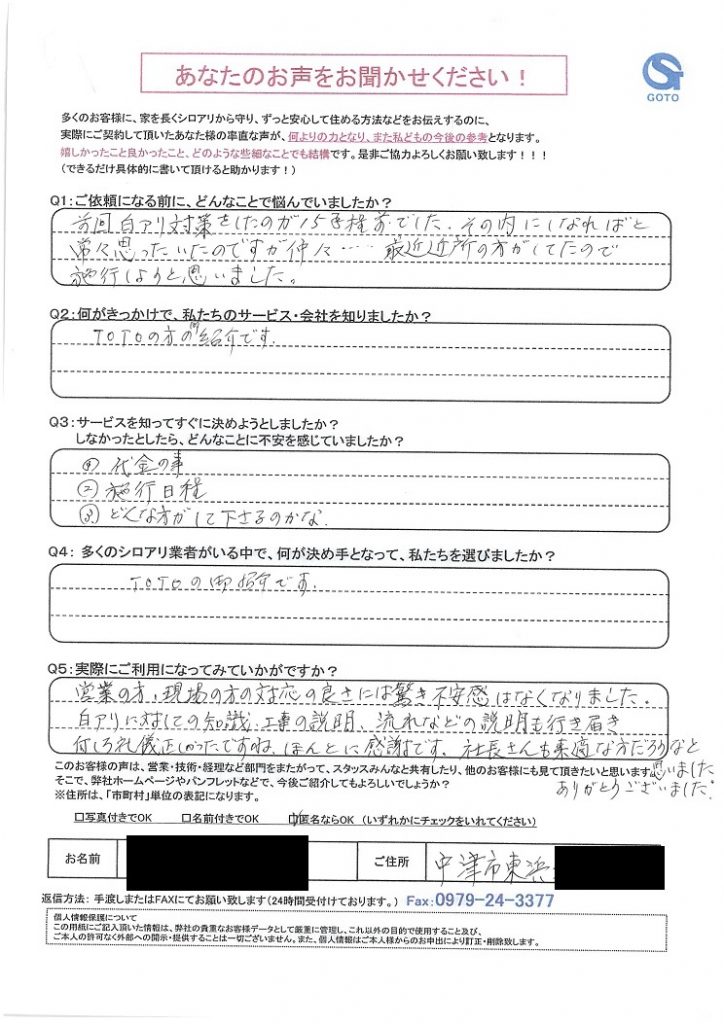 あなたのお声をお聞かせください！
GOTO
多くのお客様に、家を長くシロアリから守り、ずっと安心して住める方法などをお伝えするのに、
実際にご契約して頂いたあなた様の率直な声が、何よりの力となり、また私どもの今後の参考となります。
嬉しかったこと良かったこと、どのような些細なことでも結構です。是非ご協力よろしくお願い致します！！！
（できるだけ具体的に書いて頂けると助かります！）
Q1：ご依頼になる前に、どんなことで悩んでいましたか？
前回白アリ対策をしたのが15年程前でした。その内にしなればと
常々思ったいたのですが仲々……最近近所の方がしてたので
施行しようと思いました。
Q2：何がきっかけで、私たちのサービス・会社を知りましたか？
TOTOの方の御紹介です。
Q3：サービスを知ってすぐに決めようとしましたか？
しなかったとしたら、どんなことに不安を感じていましたか？
① 代金の事
② 施行日程
③ どんな方がして下さるのかな。
Q4： 多くのシロアリ業者がいる中で、何が決め手となって、私たちを選びましたか？
TOTOの御紹介です。
Q5：実際にご利用になってみていかがですか？
営業の方、現場の方の対応の良さには驚き不安感はなくなりました。
白アリに対しての知識、工事の説明、流れなどの説明も行き届き
何しろ礼儀正しかったですね。ほんとに感謝です。社長さんも素適な方だろうなと
思いました
ありがとうございました。
このお客様の声は、営業・技術・経理など部門をまたがって、スタッスみんなと共有したり、他のお客様にも見て頂きたいと思います。
そこで、弊社ホームページやパンフレットなどで、今後ご紹介してもよろしいでしょうか？
※住所は、「市町村」単位の表記になります。
□写真付きでOK □名前付きでOK ☑匿名ならOK （いずれかにチェックをいれてください）
お名前 ご住所 中津市東浜
返信方法： 手渡しまたはFAXにてお願い致します（24時間受付けております。） Fax：0979-24-3377
個人情報保護について
この用紙にご記入頂いた情報は、弊社の貴重なお客様データとして厳重に管理し、これ以外の目的で使用すること及び、
ご本人の許可なく外部への開示・提供することは一切ございません。また、個人情報はご本人様からのお申出により訂正・削除致します。